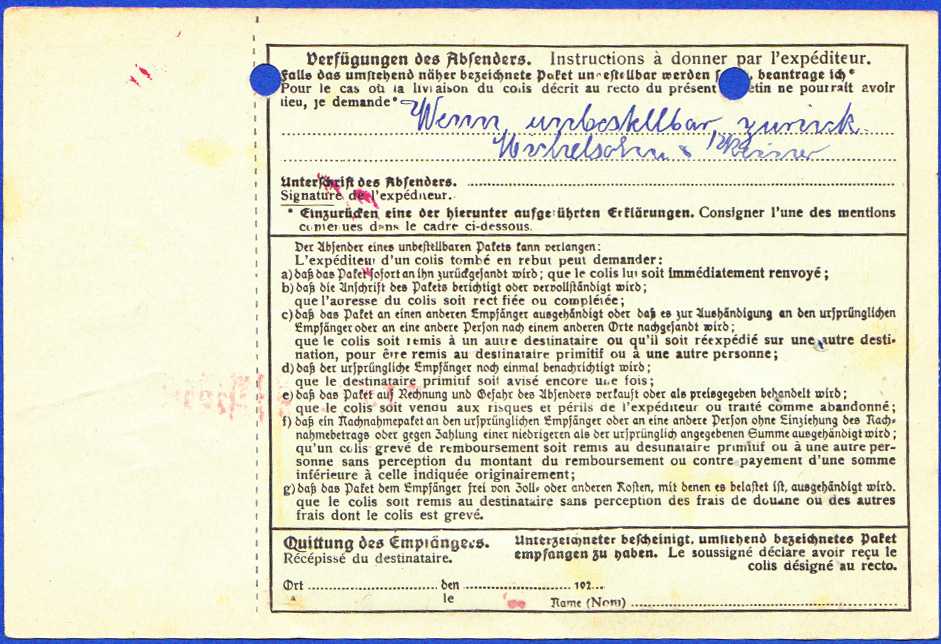 Verfügungen des Absenders. Instructions à donner par l'expéditeur.
Falls das umstehend näher bezeichnete Paket unbestellbar werden beantrage ich*
Pour le cas où la livraison du colis décrit au recto du présent ne pourrait avoir
lieu, je demande*
Wenn unbestellbar zurück
Unterschrift des Absenders.
Signature de l'expéditeur.
* Einzurücken eine der hierunter aufgeführten Erklärungen. Consigner l'une des mentions
contenues dans le cadre ci-dessous.
Der Absender eines unbestellbaren Pakets kann verlangen:
L'expéditeur d'un colis tombé en rebut peut demander:
a) daß das Paket sofort an ihn zurückgesandt wird; que le colis lui soit immédiatement renvoyé;
b) daß die Anschrift des Pakets berichtigt oder vervollständigt wird;
que l'adresse du colis soit rectifiée ou complétée;
c) daß das Paket an einen anderen Empfänger ausgehändigt oder daß es zur Aushändigung an den ursprünglichen
Empfänger oder an eine andere Person nach einem anderen Orte nachgesandt wird;
que le colis soit remis à un autre destinataire ou qu'il soit réexpédié sur une autre desti-
nation, pour être remis au destinataire primitif ou à une autre personne;
d) daß der ursprüngliche Empfänger noch einmal benachrichtigt wird;
que le destinataire primitif soit avisé encore une fois;
e) daß das Paket auf Rechnung und Gefahr des Absenders verkauft oder als preisgegeben behandelt wird;
que le colis soit vendu aux risques et périls de l'expéditeur ou traité comme abandonné;
f) daß ein Nachnahmepaket an den ursprünglichen Empfänger oder an eine andere Person ohne Einziehung des Nach-
nahmebetrags oder gegen Zahlung einer niedrigeren als der ursprünglich angegebenen Summe ausgehändigt wird;
qu'un colis grevé de remboursement soit remis au destinataire primitif ou à une autre per-
sonne sans perception du montant du remboursement ou contre payement d'une somme
inférieure à celle indiquée originairement;
g) daß das Paket dem Empfänger frei von Zoll- oder anderen Kosten, mit denen es belastet ist, ausgehändigt wird.
que le colis soit remis au destinataire sans perception des frais de douane ou des autres
frais dont le colis est grevé.
Quittung des Empfängers.
Récépissé du destinataire.
Unterzeichneter bescheinigt, umstehend bezeichnetes Paket
empfangen zu haben. Le soussigné déclare avoir reçu le
colis désigné au recto.
Ort den 192
le
Name (Nom)